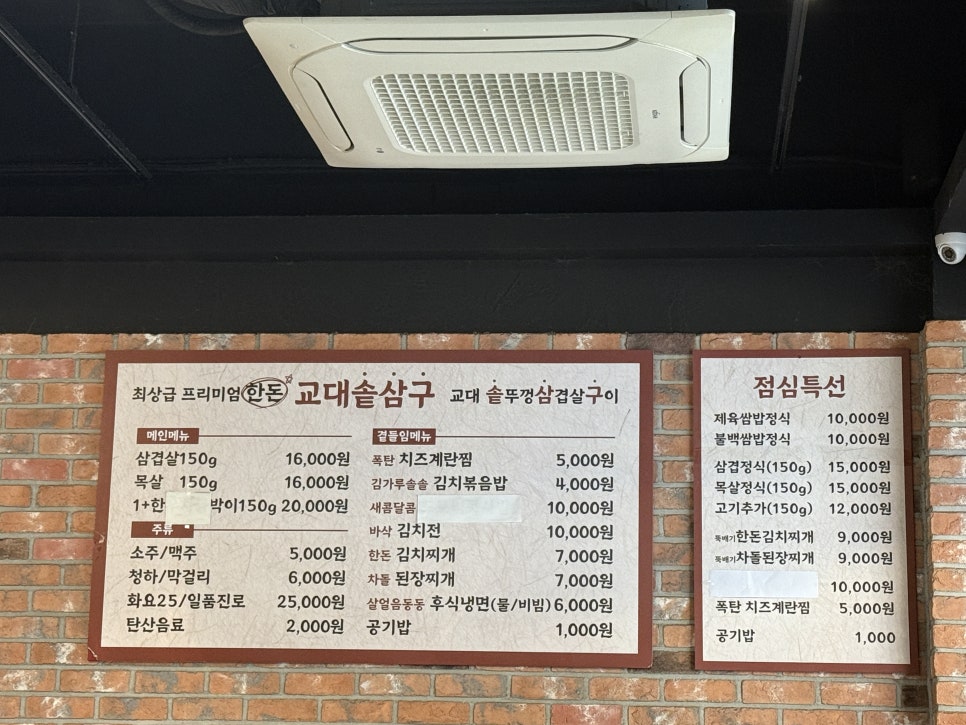 최상급 프리미엄 한돈 교대솥삼구 교대 솥뚜껑삼겹살구이
메인메뉴
삼겹살150g 16,000원
목살 150g 16,000원
1+한 박이150g 20,000원
주류
소주/맥주 5,000원
청하/막걸리 6,000원
화요25/일품진로 25,000원
탄산음료 2,000원
곁들임메뉴
폭탄 치즈계란찜 5,000원
김가루솔솔 김치볶음밥 4,000원
새콤달콤 10,000원
바삭 김치전 10,000원
한돈 김치찌개 7,000원
차돌 된장찌개 7,000원
살얼음동동 후식냉면(물/비빔) 6,000원
공기밥 1,000원
점심특선
제육쌈밥정식 10,000원
불백쌈밥정식 10,000원
삼겹정식(150g) 15,000원
목살정식(150g) 15,000원
고기추가(150g) 12,000원
뚝배기한돈김치찌개 9,000원
뚝배기차돌된장찌개 9,000원
10,000원
폭탄 치즈계란찜 5,000원
공기밥 1,000